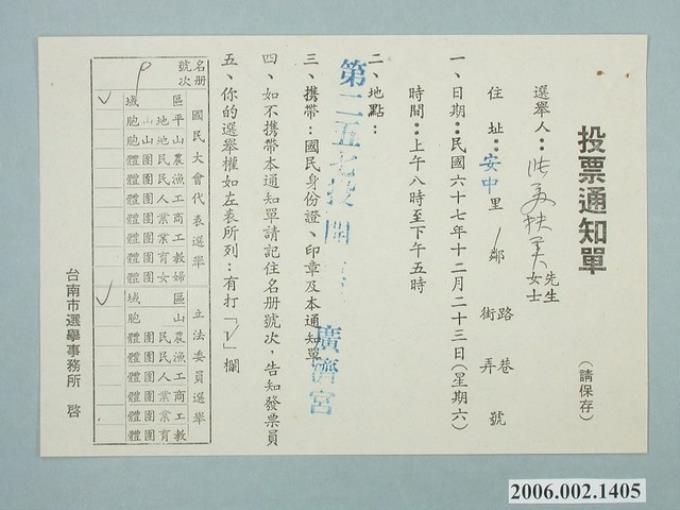 投票通知單
（請保存）
選舉人：
先生
女士
住　址：安中里　鄰　路街　巷弄　號
一、日期：民國六十七年十二月二十三日（星期六）
時間：上午八時至下午五時
二、地點：
第二五七投開
廣濟宮
三、携帶：國民身份證、印章及本通知單
四、如不携帶本通知單請記住名册號次，告知發票員
五、你的選舉權如左表所列：有打「V」欄
名册號次
9
國民大會代表選舉
區域
平地山胞
山地山胞
農民團體
漁民團體
工人團體
商業團體
工業團體
教育團體
婦女團體
立法委員選舉
區域
山胞
農民團體
漁民團體
工人團體
商業團體
工業團體
教育團體
台南市選舉事務所　啓
2006.002.1405